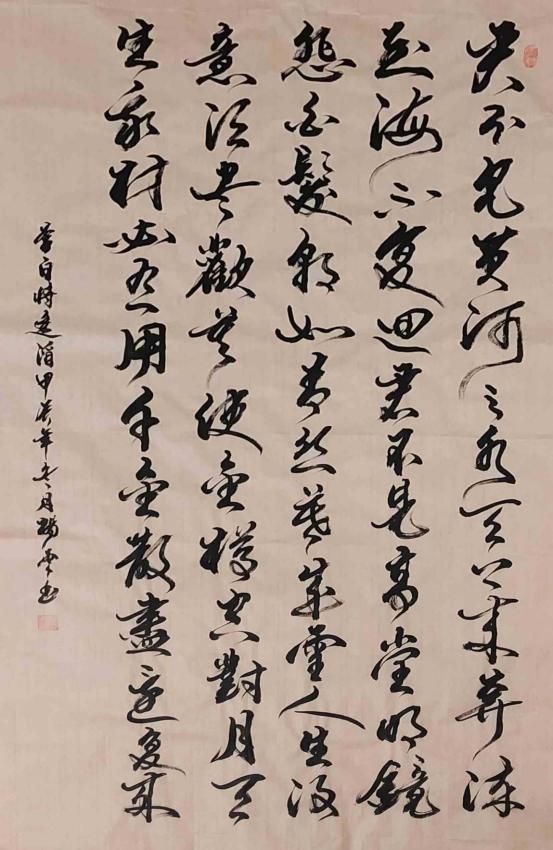 君不見黃河之水天上来奔流
到海不復迴君不見高堂明鏡
悲白髮朝如青丝暮成雪人生得
意須尽歡莫使金樽空對月天
生我材必有用千金散盡還復来
李白將進酒甲辰年冬月 书